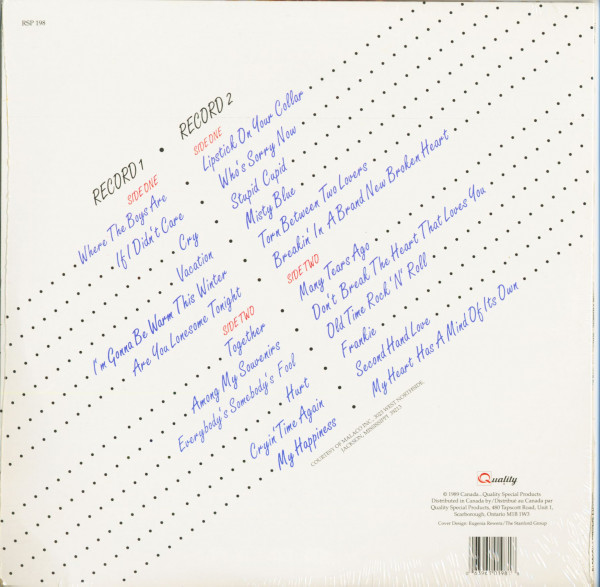 RSP 198
RECORD 1
SIDE ONE
Where The Boys Are
If I Didn't Care
Cry
Vacation
I'm Gonna Be Warm This Winter
Are You Lonesome Tonight
SIDE TWO
Together
Among My Souvenirs
Everybody's Somebody's Fool
Hurt
Cryin Time Again
My Happiness
RECORD 2
SIDE ONE
Lipstick On Your Collar
Who's Sorry Now
Stupid Cupid
Misty Blue
Torn Between Two Lovers
Breakin' In A Brand New Broken Heart
SIDE TWO
Many Tears Ago
Don't Break The Heart That Loves You
Old Time Rock 'N' Roll
Frankie
Second Hand Love
My Heart Has A Mind Of Its Own
COURTESY OF MALACO INC., 3023 WEST NORTHSIDE,
JACKSON, MISSISSIPI, 39213
Quality
© 1989 Canada - Quality Special Products
Distributed in Canada by/Distribué au Canada par
Quality Special Products, 480 Tapscott Road, Unit 1,
Scarborough, Ontario M1B 1W3
Cover Design: Eugenia Bowers/The Stanford Group